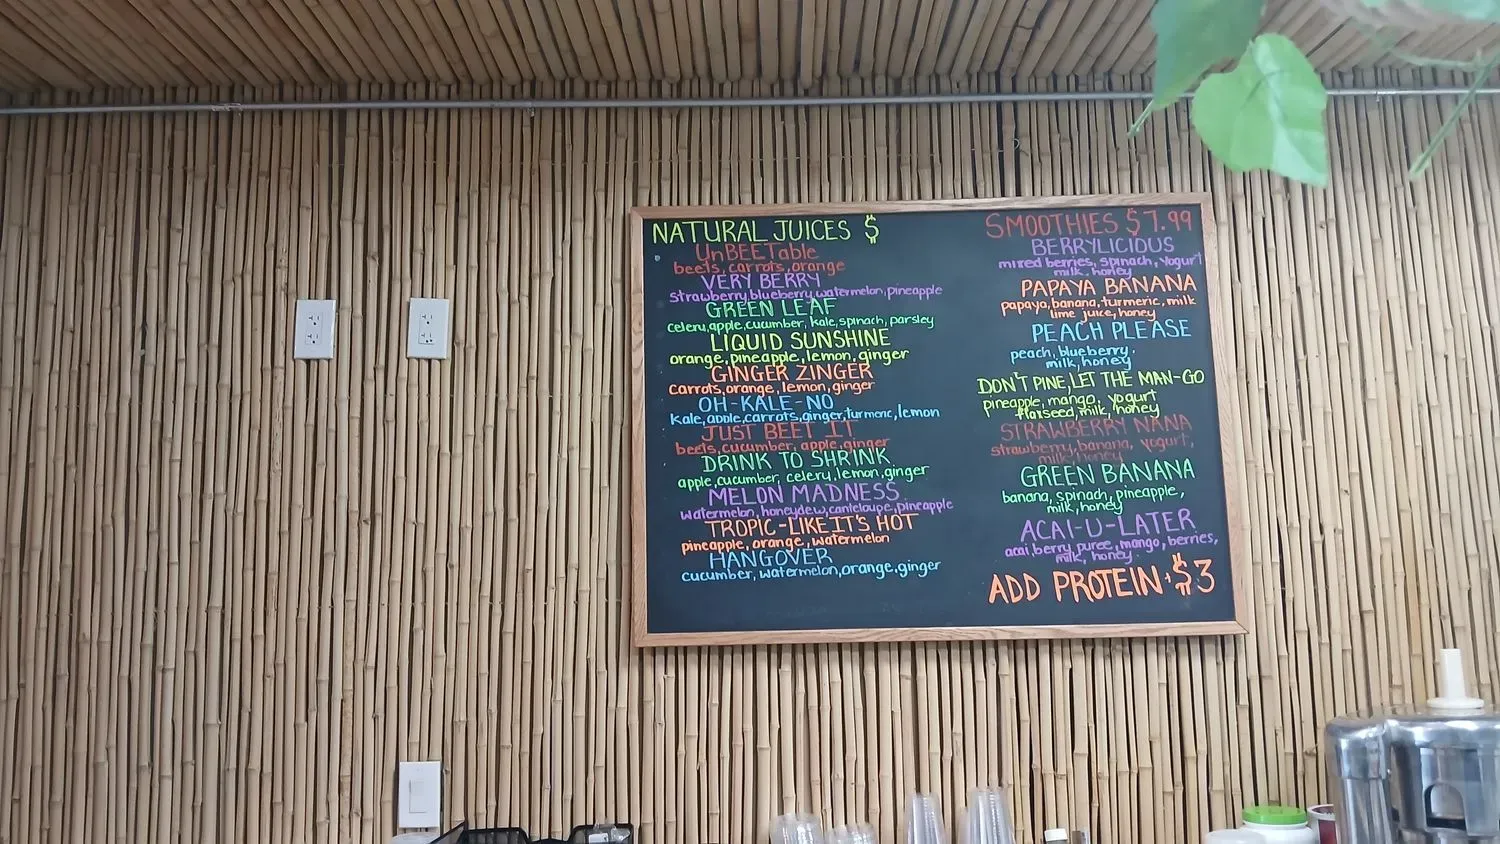 NATURAL JUICES $
UnBEETable
beets, carrots, orange
VERY BERRY
strawberry, blueberry, watermelon, pineapple
GREEN LEAF
celery, apple, cucumber, kale, spinach, parsley
LIQUID SUNSHINE
orange, pineapple, lemon, ginger
GINGER ZINGER
carrots, orange, lemon, ginger
OH-KALE-NO
kale, apple, carrots, ginger, turmeric, lemon
JUST BEET IT
beets, cucumber, apple, ginger
DRINK TO SHRINK
apple, cucumber, celery, lemon, ginger
MELON MADNESS
watermelon, honeydew, canteloupe, pineapple
TROPIC-LIKE IT'S HOT
pineapple, orange, watermelon
HANGOVER
cucumber, watermelon, orange, ginger
SMOOTHIES $7.99
BERRYLICIOUS
mixed berries, spinach, yogurt
milk, honey
PAPAYA BANANA
papaya, banana, turmeric, milk
lime juice, honey
PEACH PLEASE
peach, blueberry,
milk, honey
DON'T PINE, LET THE MAN-GO
pineapple, mango, yogurt
flaxseed, milk, honey
STRAWBERRY NANA
strawberry, banana, yogurt,
milk, honey
GREEN BANANA
banana, spinach, pineapple,
milk, honey
ACAI-U-LATER
acai berry puree, mango, berries,
milk, honey
ADD PROTEIN · $3